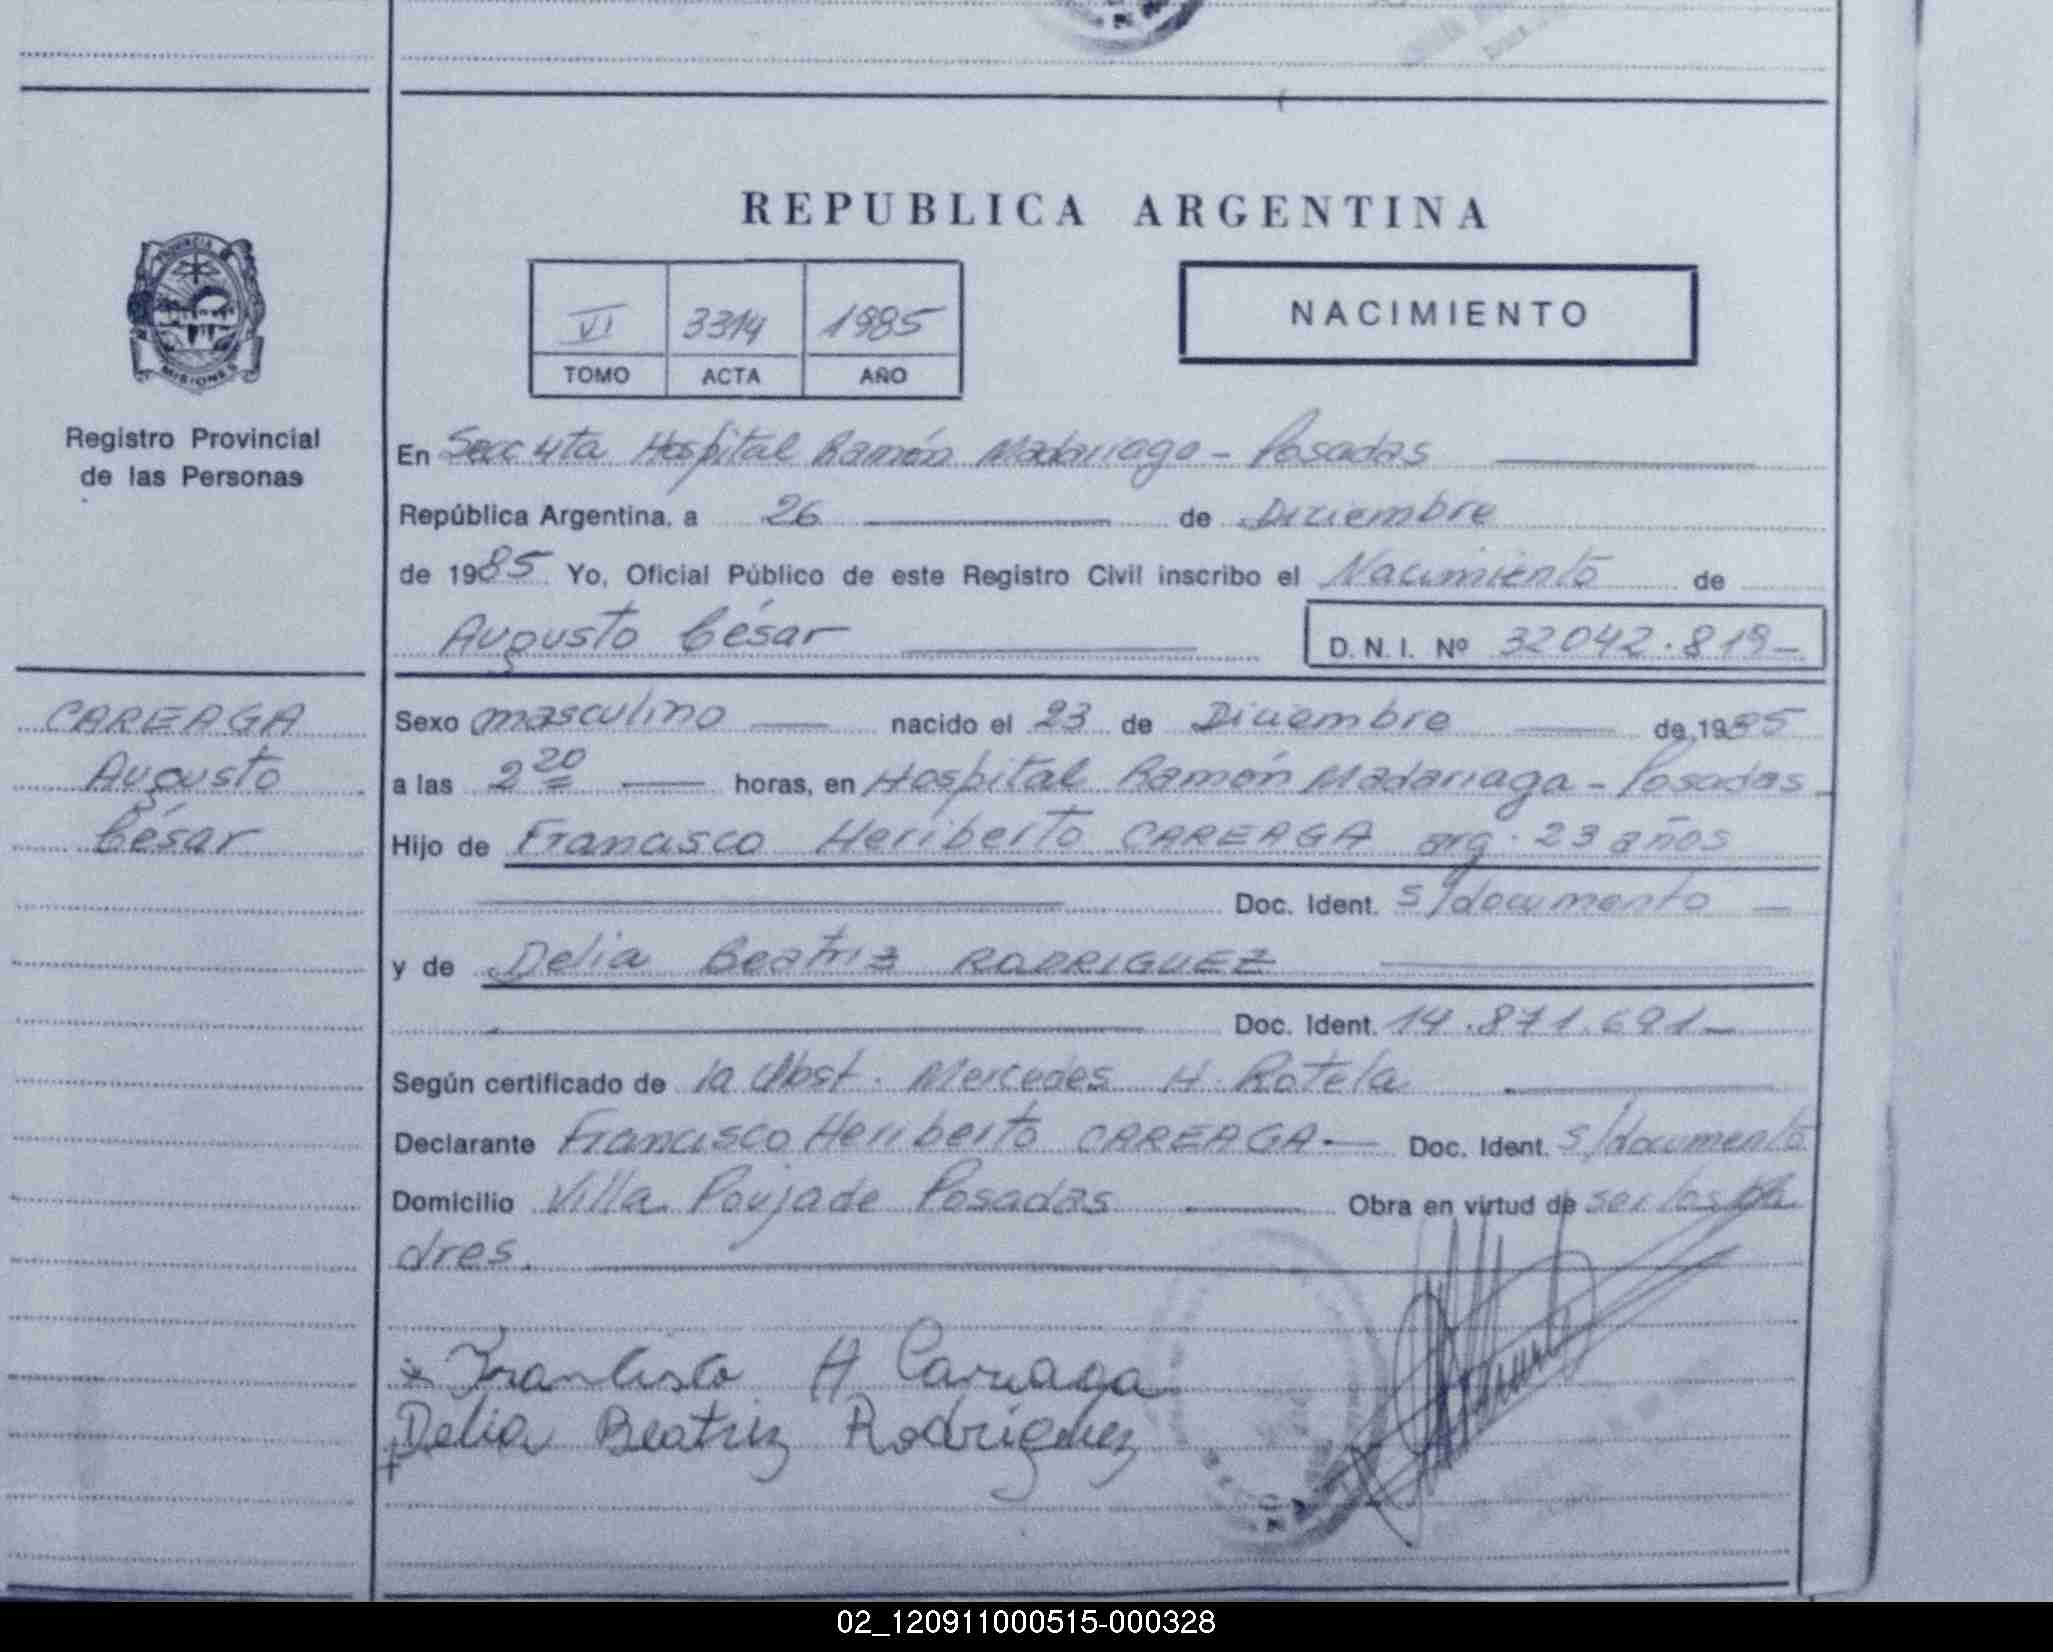 REPUBLICA ARGENTINA
PROVINCIA DE
MISIONES
VI 3314 1985
TOMO ACTA AÑO
NACIMIENTO
Registro Provincial
de las Personas
En Secc 4ta Hospital Ramón Madariaga - Posadas
República Argentina, a 26 de Diciembre
de 1985 Yo, Oficial Público de este Registro Civil inscribo el Nacimiento de
Augusto César D.N.I. Nº 32042.819-
CAREAGA
Augusto
César
Sexo masculino nacido el 23 de Diciembre de 1985
a las 2 20 horas, en Hospital Ramón Madariaga - Posadas
Hijo de Francisco Heriberto CAREAGA arg. 23 años
Doc. Ident. s/documento
y de Delia Beatriz RODRIGUEZ
Doc. Ident. 14.871.691-
Según certificado de la Obst. Mercedes H. Rotela
Declarante Francisco Heriberto CAREAGA.- Doc. Ident. s/documento
Domicilio Villa Poujade Posadas Obra en virtud de ser los pa
dres.
x Francisco H Careaga
Delia Beatriz Rodriguez
02_120911000515-000328